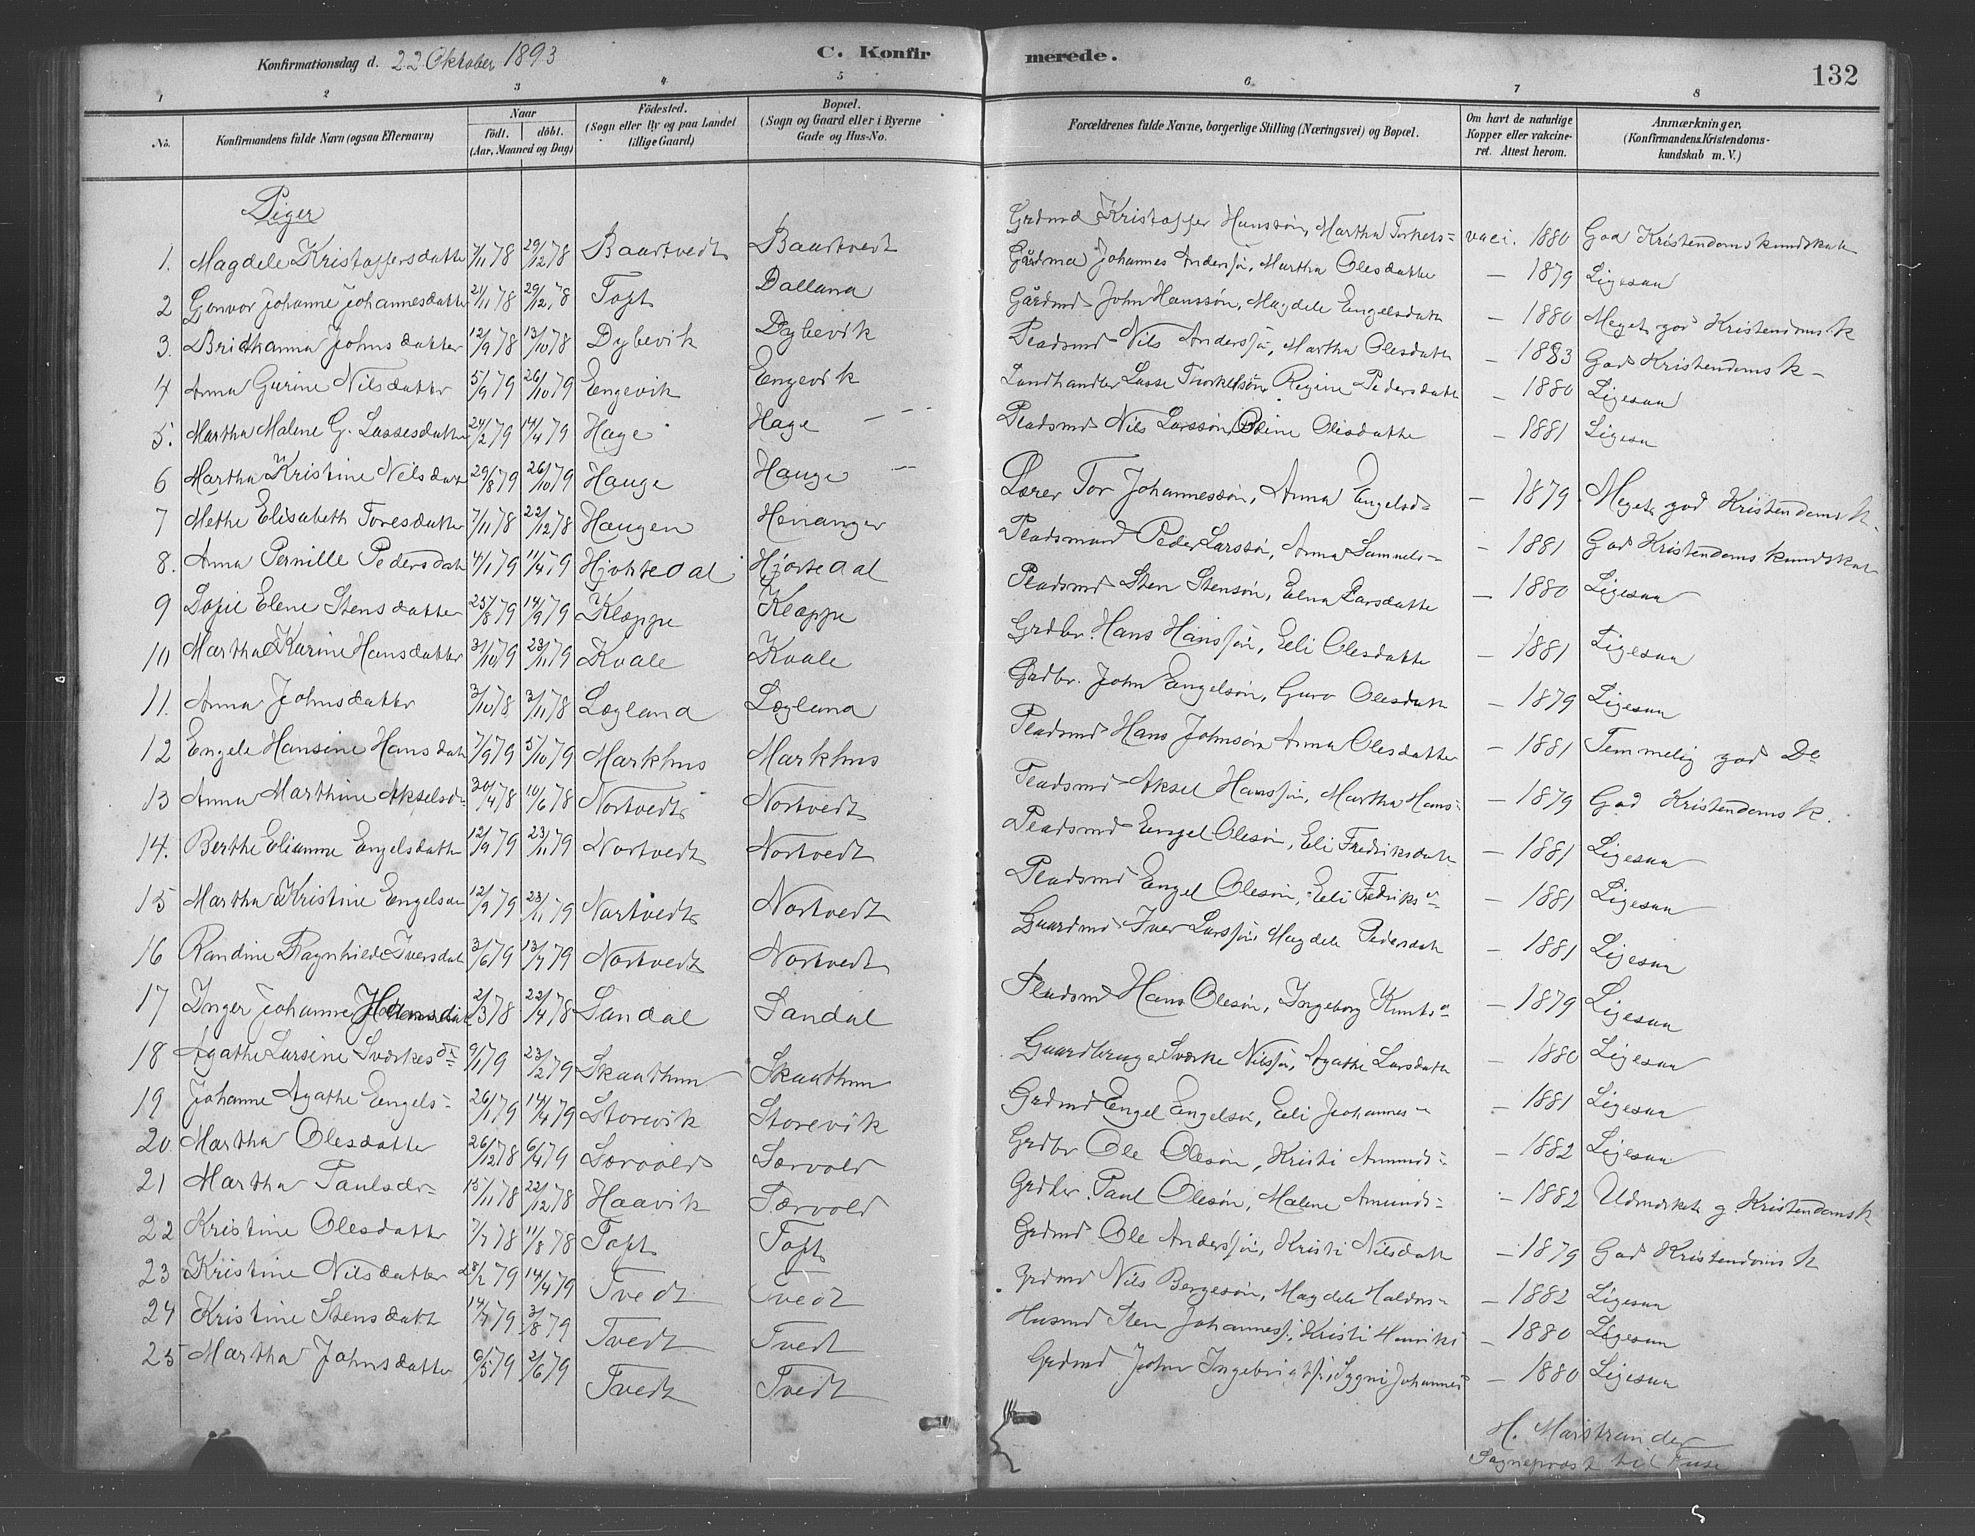 Konfirmationsdag d. 22 Oktober 1893 C. Konfir merede. 132
1 2 3 4 5 6 7 8
No. Konfirmandens fulde Navn (ogsaa Efternavn) Naar født. døbt. (Aar, Maaned og Dag) Fødested. (Sogn eller By og paa Landet tillige Gaard) Bopæl. (Sogn og Gaard eller i Byerne Gade og Hus-No. Forældrenes fulde Navne, borgerlige Stilling (Næringsvei) og Bopæl. Om havt de naturlige Kopper eller vakcineret. Attest herom. Anmærkninger, (Konfirmandens Kristendomskundskab m. V.)
Piger
1. Magdele Kristoffersdatte 7/11 78 29/12 78 Baartvedt Baartvedt Grdmd Kristoffer Hanssøn, Martha Torkels- vaci. 1880 God Kristendomskundskab
2 Gonvor Johanne Johannesdatte 21/11 78 29/12 78 Toft Dalland Gårdmd Johannes Anderssø, Martha Olesdatte - 1879 Ligesaa
3. Brithanna Johnsdatter 12/9 78 13/10 78 Dybevik Dybevik Gårdmd John Hanssøn, Magdele Engelsdatte - 1880 Meget god Kristendoms K
4 Anna Gurine Nilsdatter 5/9 79 26/10 79 Engevik Engevik Pladsmd Nils Anderssø, Martha Olesdatte - 1883 God Kristendoms K-
5. Martha Malene G. Lassesdatte 24/2 79 14/4 79 Hage Hage - - - Landhandler Lasse Thorkelsøn Regine Pedersdatte - 1880 Ligesaa
6 Martha Kristine Nilsdatt 29/8 79 26/10 79 Hauge Hauge - Pladsmd Nils Larssøn Oline Olisdatte - 1881 Ligesa
7 Methe Elisabeth Toresdatter 7/11 78 22/12 78 Haugen Henanger Lærer Tor Johannessøn, Anna Engelsd- - 1879 Meget god Kristendoms K.
8. Anna Pernille Pedersdatt 4/1 79 11/4 79 Hjortedal Hjortedal Pladsmand Peder Larssø, Anna Samuels- - 1881 God Kristendomskundskab
9 Sofie Elene Stensdatter 25/8 79 14/9 79 Klæppe Klæppe Pladsmd Sten Stensøn, Elna Larsdatte - 1880 Ligesaa
10 Martha Karine Hansdatter 31/10 79 23/11 79 Kvale Kvale Grdbr. Hans Hanssøn, Eli Olesdatte - 1881 Ligesaa
11. Anna Johnsdatter 3/10 78 3/11 78 Lægland Lægland Grdbr. John Engelsøn, Guro Olesdatte - 1879 Ligesaa
12 Engele Hansine Hansdatt 7/9 79 5/10 79 Markhus Markhus Pladsmd Hans Johnsøn Anna Olesdatter - 1881 Temmelig god Do
13 Anna Marthine Akselsd- 30/4 78 10/6 78 Nortvedt Nortvedt Pladsmd Aksel Hanssøn, Martha Hans- - 1879 God Kristendoms K.
14. Berthe Elianne Engelsdatte 12/9 79 23/11 79 Nortvedt Nortvedt Pladsmd Engel Olesøn, Eli Fredriksdatt - 1881 Ligesaa
15 Martha Kristine Engelsdat 12/9 79 23/11 79 Nortvedt Nortvedt Pladsmd Engel Olesøn, Eli Fedriks- - 1881 Ligesaa
16 Randine Ragnhilde Iversdat 3/6 79 13/7 79 Nortvedt Nortvedt Gaardmd Iver Larssøn, Magdele Pedersdatt - 1881 Ligesaa
17 Inger Johanne Hansdat 2/3 78 22/4 78 Sandal Sandal Pladsmd Hans Olesøn, Ingeborg Knuts- - 1879 Ligesaa
18 Agathe Larsine Sværkesdr 9/1 79 23/2 79 Skaathun Skaathun Gaardbruger Sværke Nilssø, Agathe Larsdatte - 1880 Ligesaa
19 Johanne Agathe Engels- 26/1 79 14/4 79 Storevik Storevik Grdmd Engel Engelsøn, Eli Johannes- - 1881 Ligesaa
20. Martha Olesdatter 26/12 78 6/4 79 Særvold Særvold Grdbr Ole Olesøn, Kristi Amunds- - 1882 Ligesaa
21 Martha Paulsdr- 15/11 78 22/12 78 Haavik Særvold Grdbr. Paul Olesøn, Malene Amunds- - 1882 Udmærket g. Kristendoms K
22 Kristine Olesdatter 7/7 78 11/8 78 Toft Toft Grdmd Ole Anderssøn, Kristi Nilsdatt - 1879 God Kristendoms K
23 Kristine Nilsdatter 28/2 79 14/4 79 Tvedt Tvedt Grdmd Nils Børgesøn, Magdele Haldors- - 1882 Ligesaa
24 Kristine Stensdatt 14/7 79 3/8 79 Tvedt Tvedt Husmd Sten Johanness, Kristi Henriks - 1880 Ligesaa
25 Martha Johnsdatter 6/5 79 2/6 79 Tvedt Tvedt Grdmd John Ingebrigts, Sygni Johannes - 1880 Ligesaa
H. Marstrander
Sogneprest til Fuse